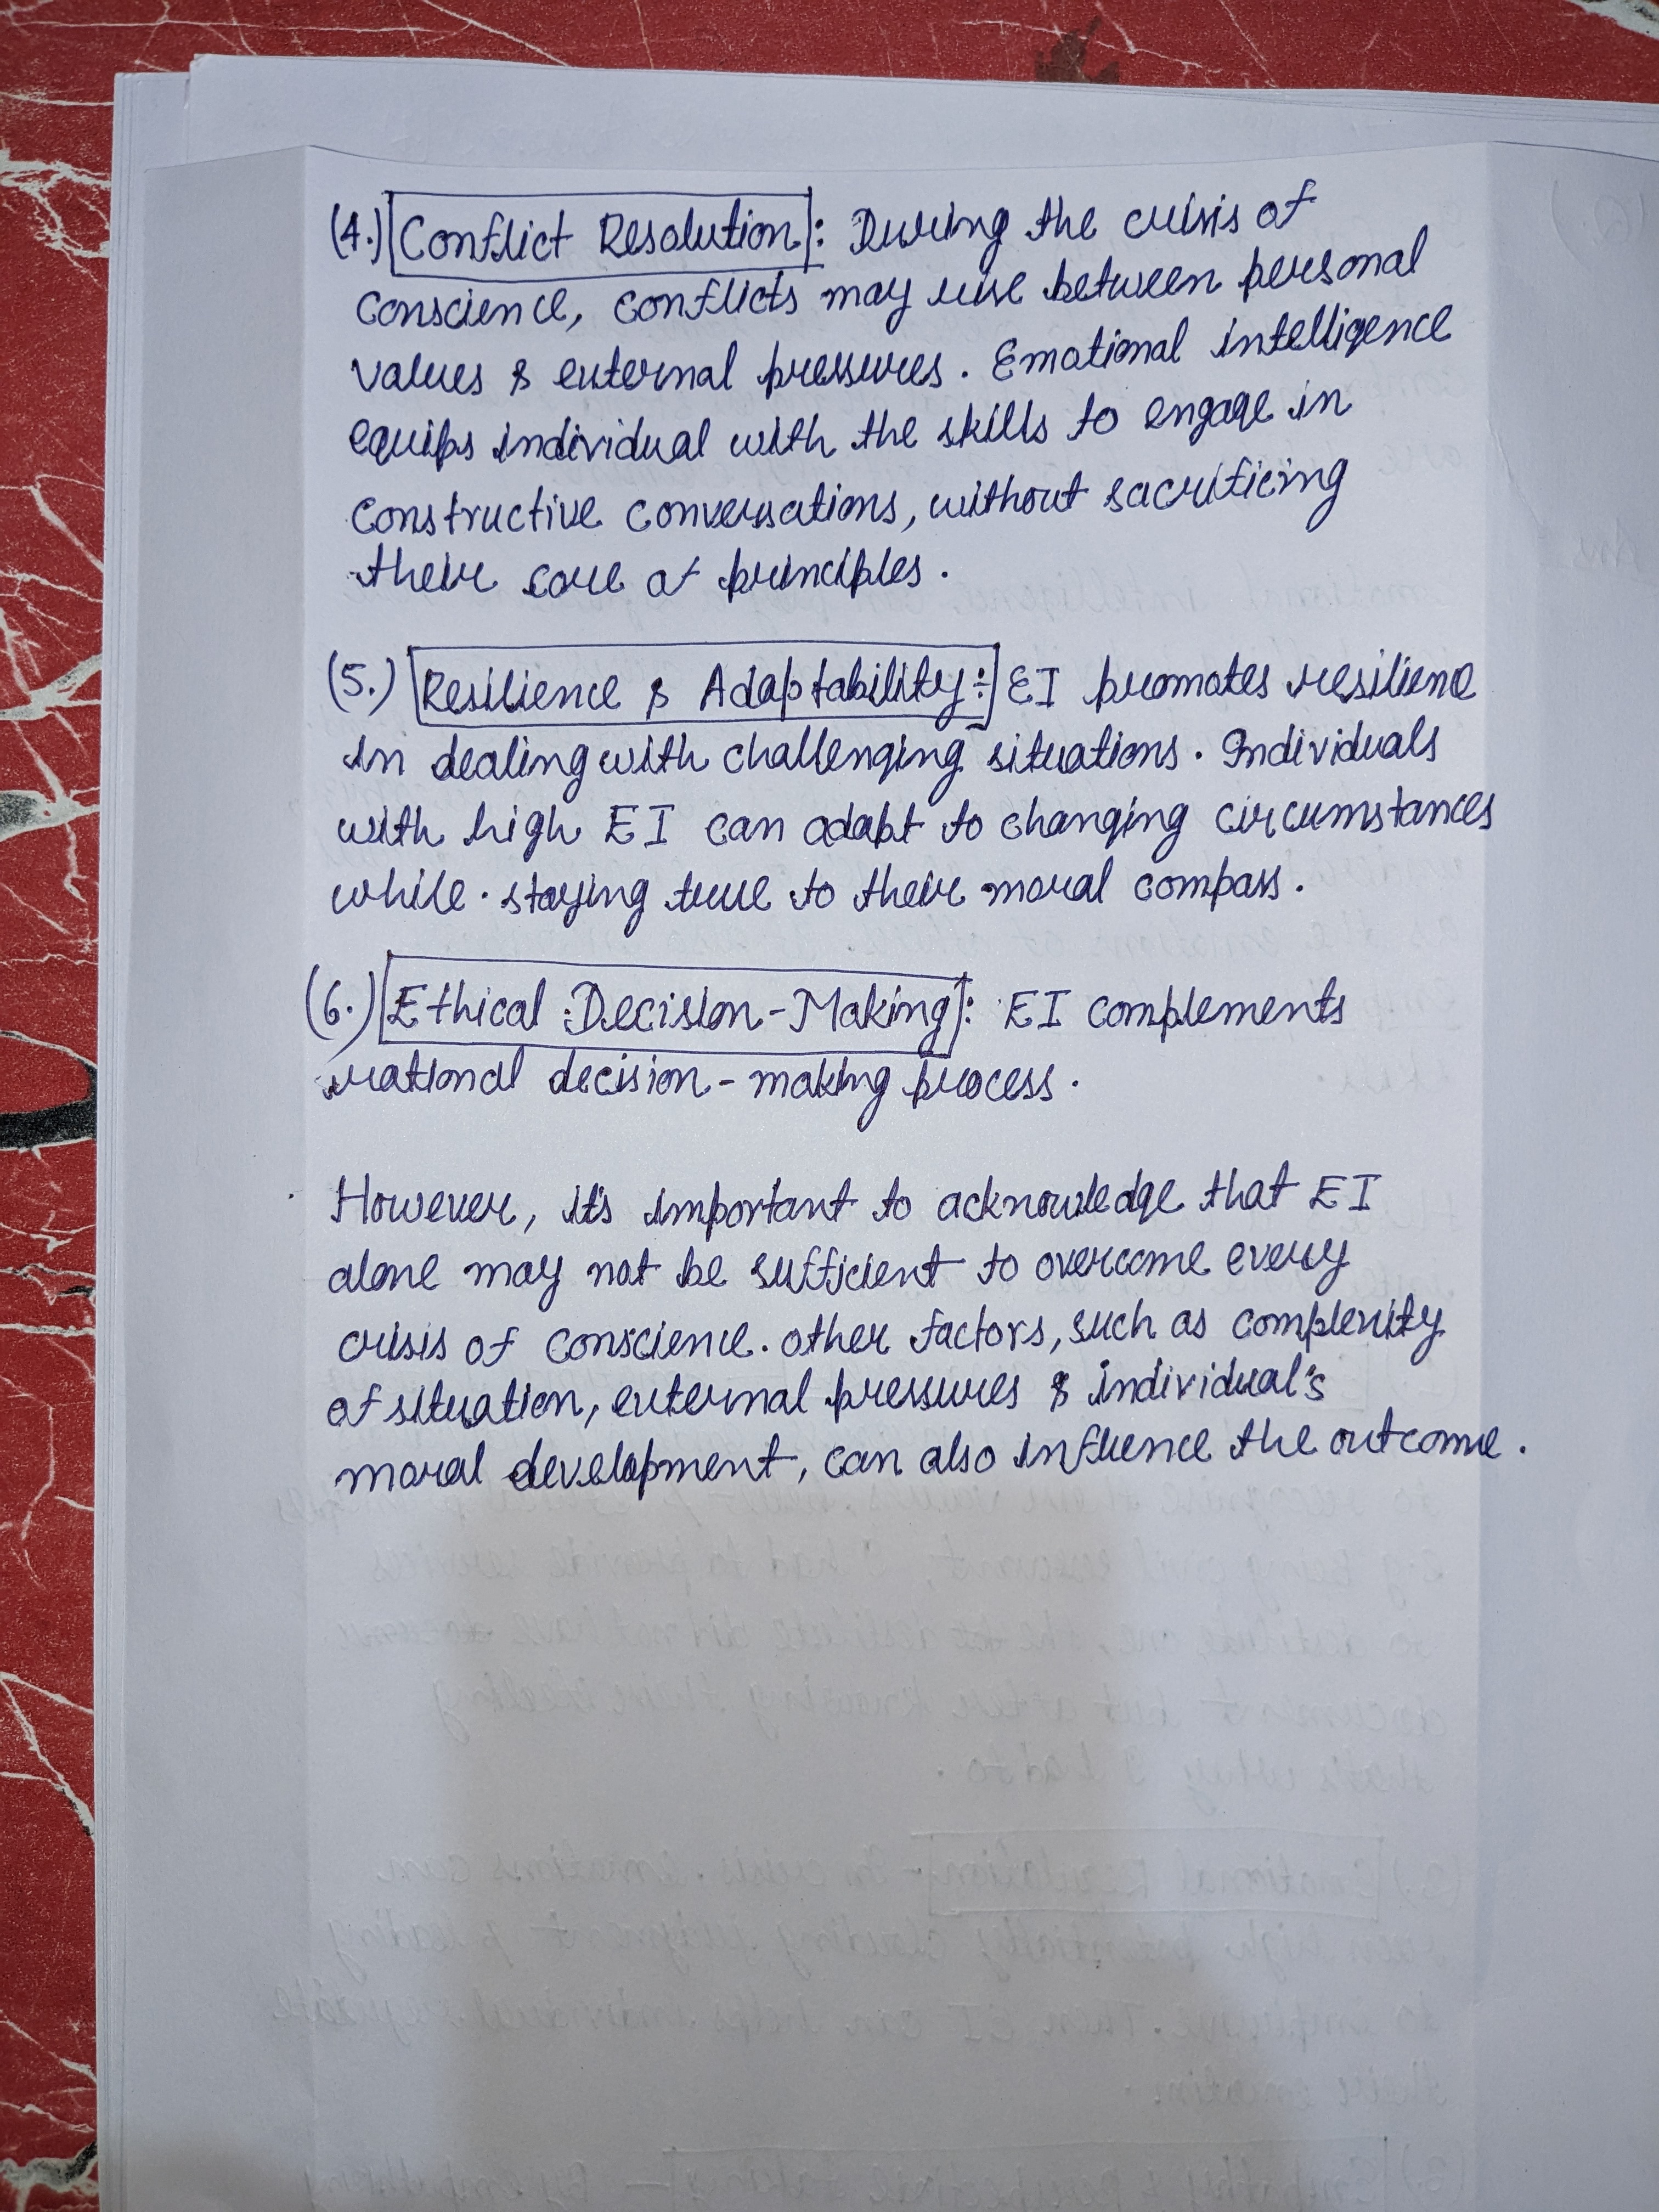 (4.) Conflict Resolution: During the crisis of
conscience, conflicts may rise between personal
values & external pressures. Emotional intelligence
equips individual with the skills to engage in
constructive conversations, without sacrificing
their core of principles.
(5.) Resilience & Adaptability:- EI promotes resilience
in dealing with challenging situations. Individuals
with high EI can adapt to changing circumstances
while staying true to their moral compass.
(6.) Ethical Decision-Making: EI complements
rational decision-making process.
However, it's important to acknowledge that EI
alone may not be sufficient to overcome every
crisis of conscience. other factors, such as complexity
of situation, external pressures & individual's
moral development, can also influence the outcome.